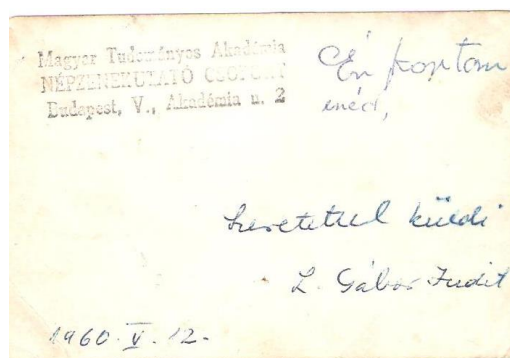 Magyar Tudományos Akadémia
NÉPZENEKUTATÓ CSOPORT
Budapest, V., Akadémia u. 2
Én kaptam
Szeretettel küldi
L. Gábor Judit
1960. V. 12.